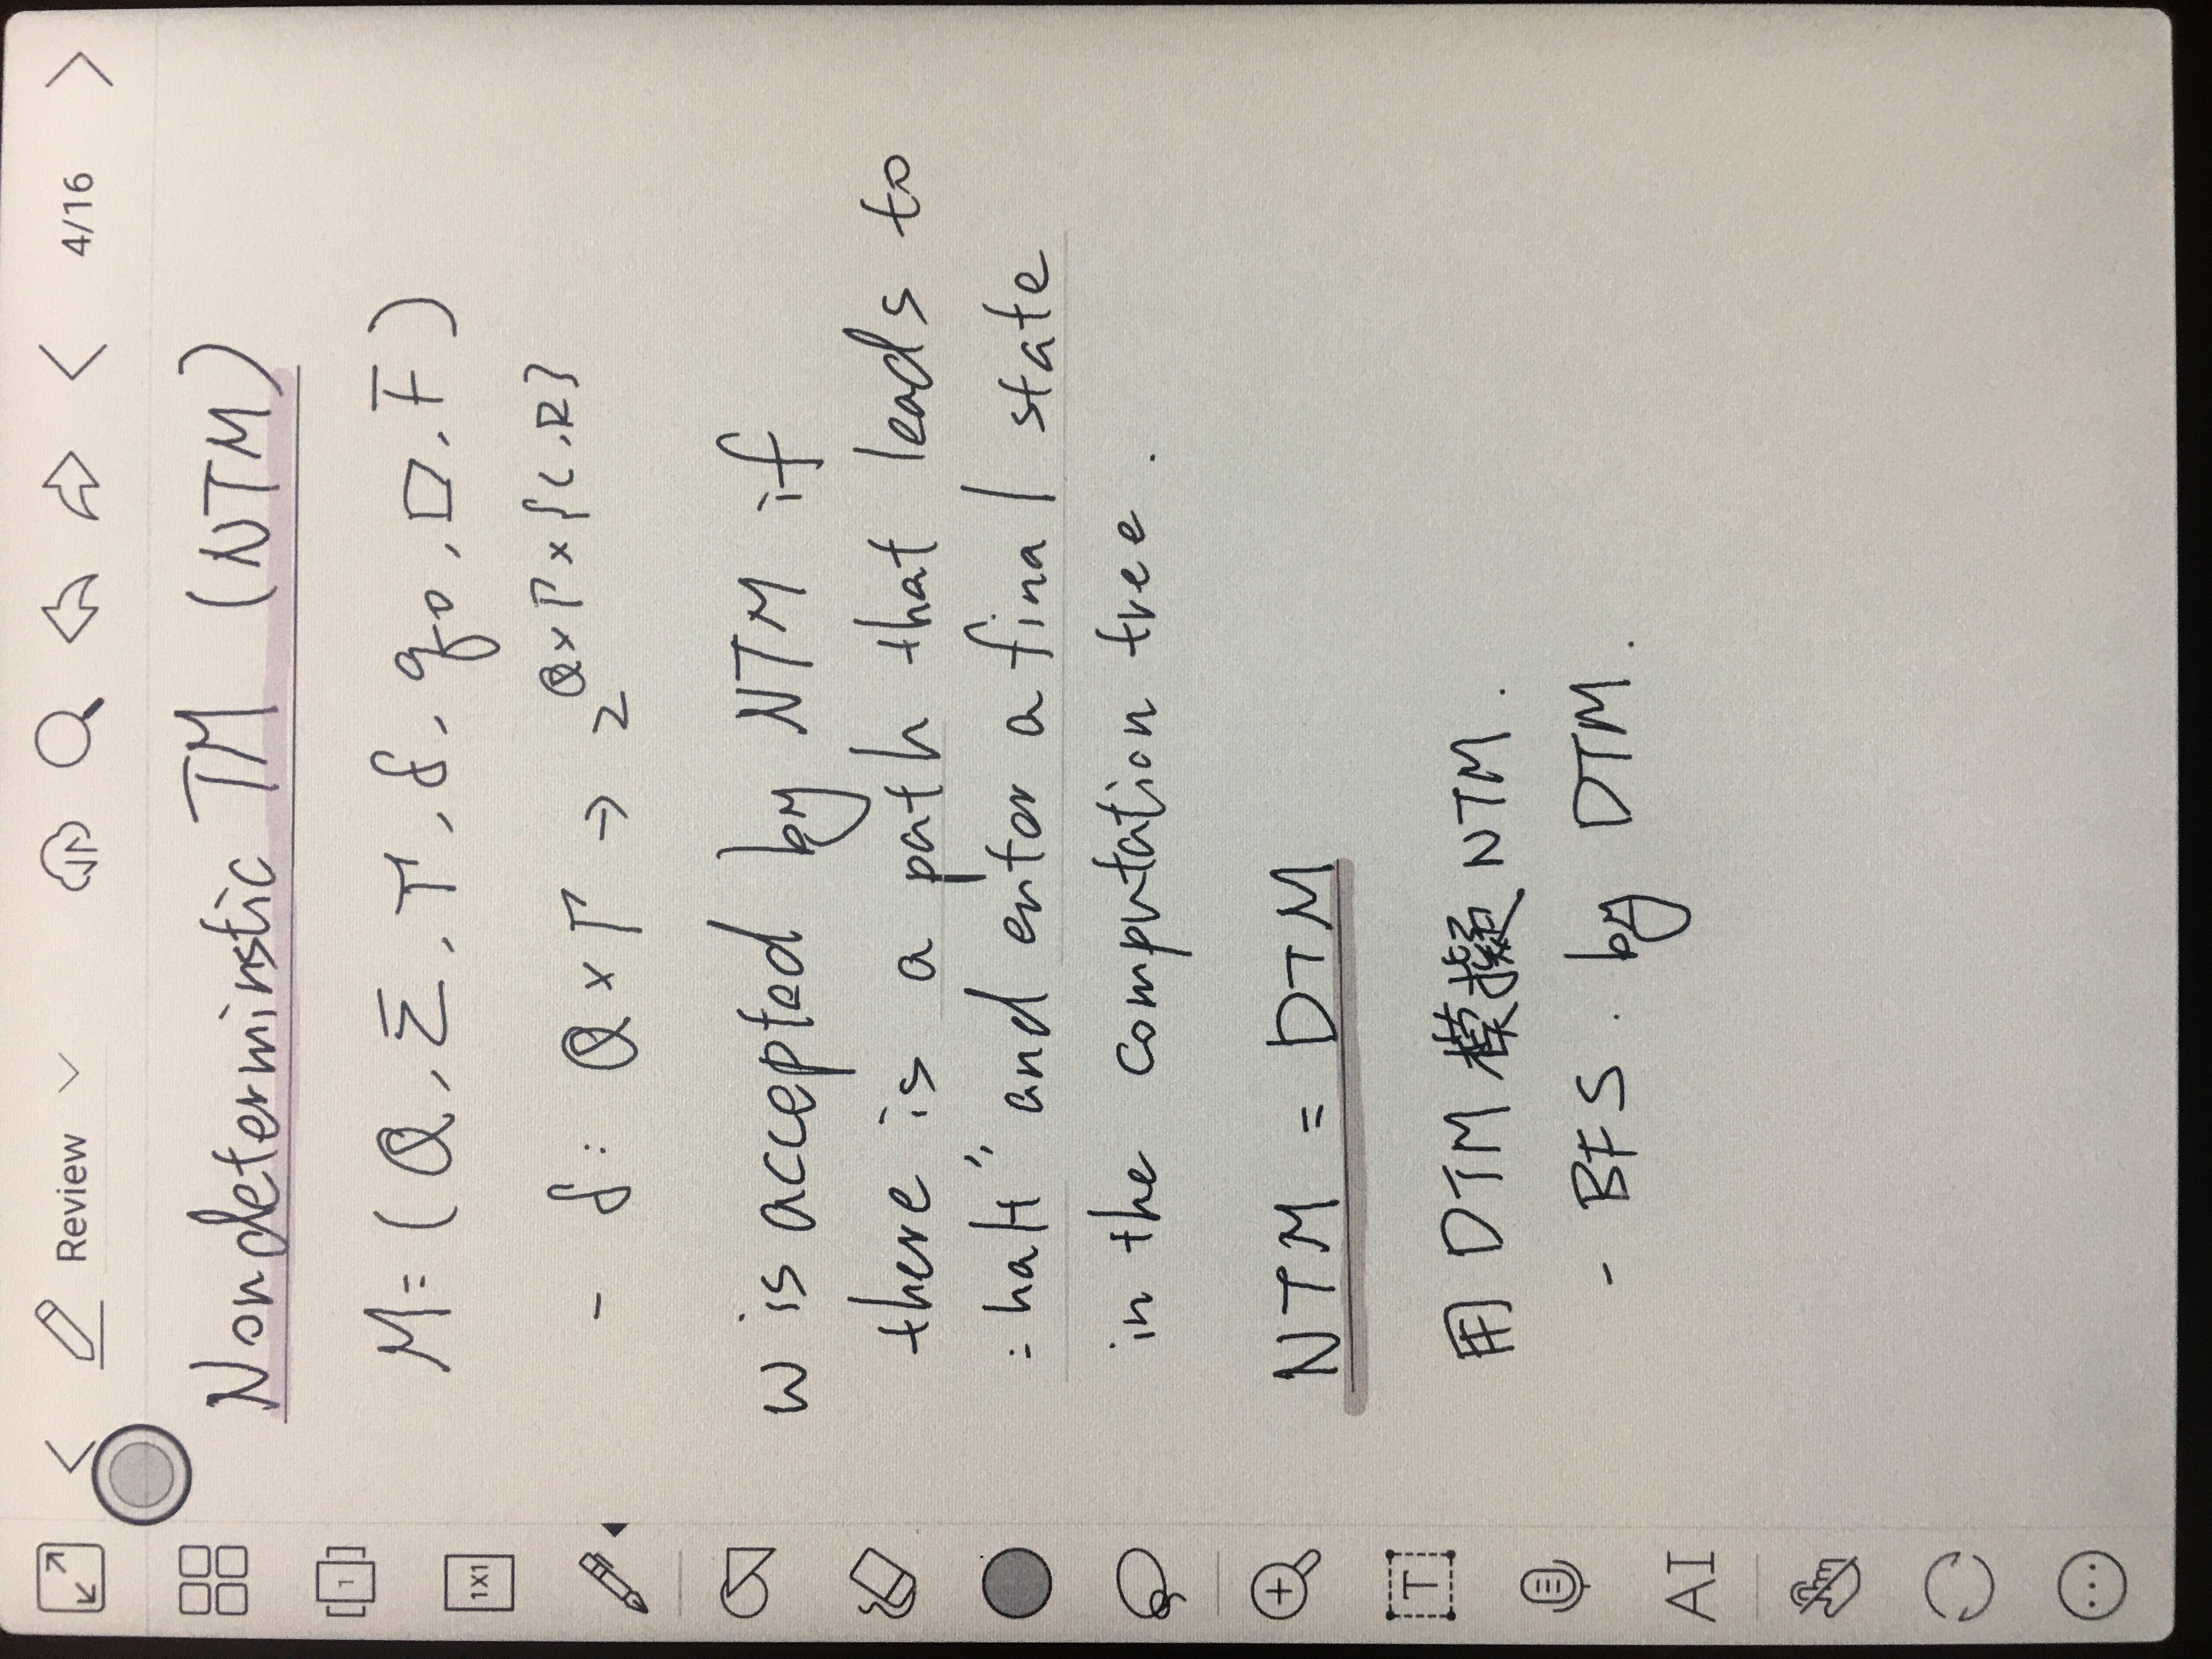 Review 4/16
1
1X1
T
AI
Nondeterminstic TM (NTM)
M = (Q, Σ, Γ, δ, q₀, □, F)
- δ: Q × Γ → 2^{Q × Γ × {L, R}}
w is accepted by NTM if
there is a path that leads to
"halt" and enter a final state
in the computation tree.
NTM = DTM
用 DTM 模擬 NTM.
- BFS. by DTM.